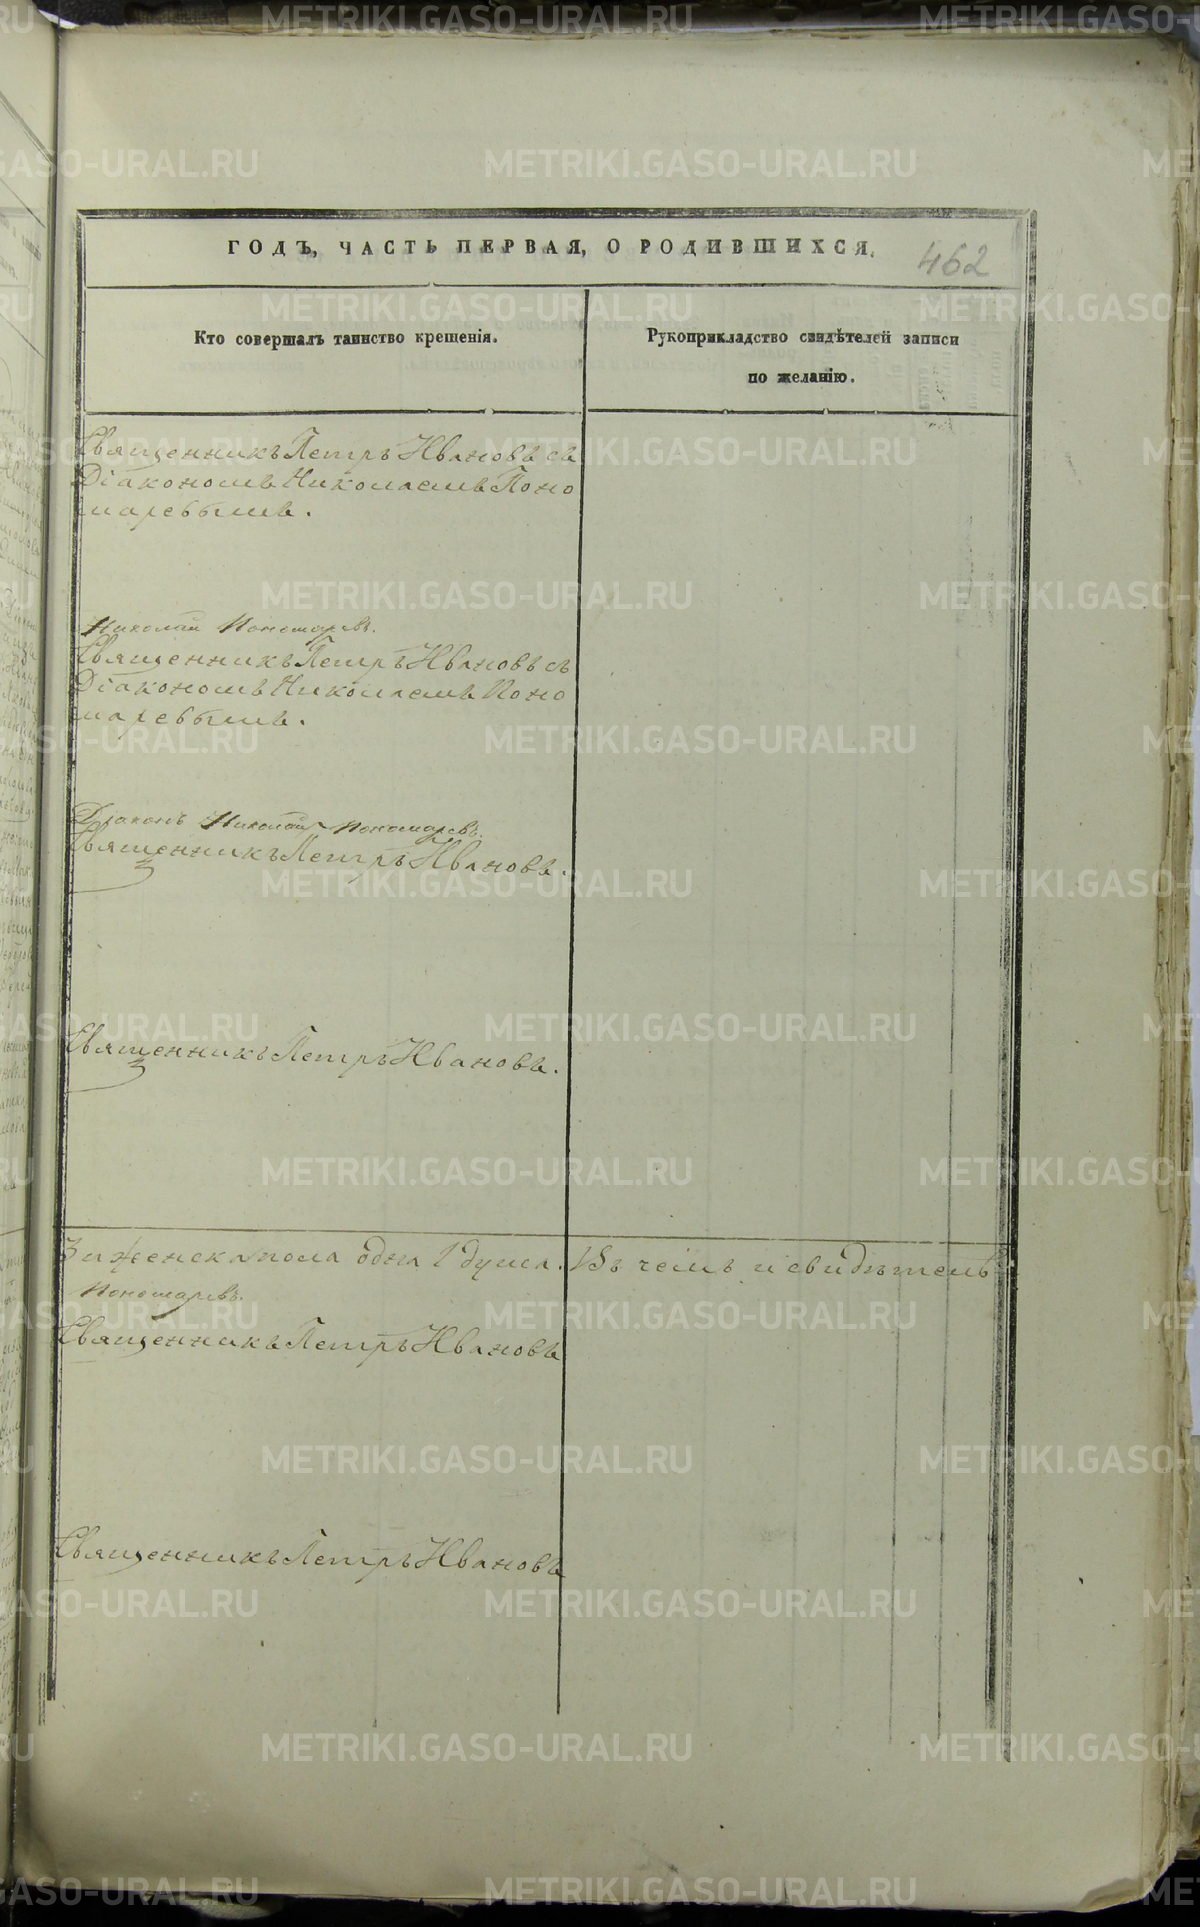 ГОДЪ, ЧАСТЬ ПЕРВАЯ, О РОДИВШИХСЯ.
462
Кто совершалъ таинство крещенія.
Рукоприкладство свидѣтелей записи
по желанію.
Священникъ Петръ Ивановъ съ
Діакономъ Николаемъ Поно
маревымъ.
Николай Пономаревъ.
Священникъ Петръ Ивановъ съ
Діакономъ Николаемъ Поно
маревымъ.
Діаконъ Николай Пономаревъ.
Священникъ Петръ Ивановъ.
Священникъ Петръ Ивановъ.
3 и женска пола одна 1 душа. Въ чемъ и свидѣтель
Пономаревъ.
Священникъ Петръ Ивановъ
Священникъ Петръ Ивановъ
METRIKI.GASO-URAL.RU